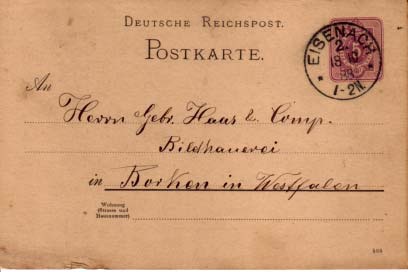 DEUTSCHE REICHSPOST.
POSTKARTE.
EISENACH
1-2N.
An
Herrn Gebr. Haas & Comp.
Bildhauerei
in Borken in Westfalen
Wohnung
(Strasse und
Hausnummer)